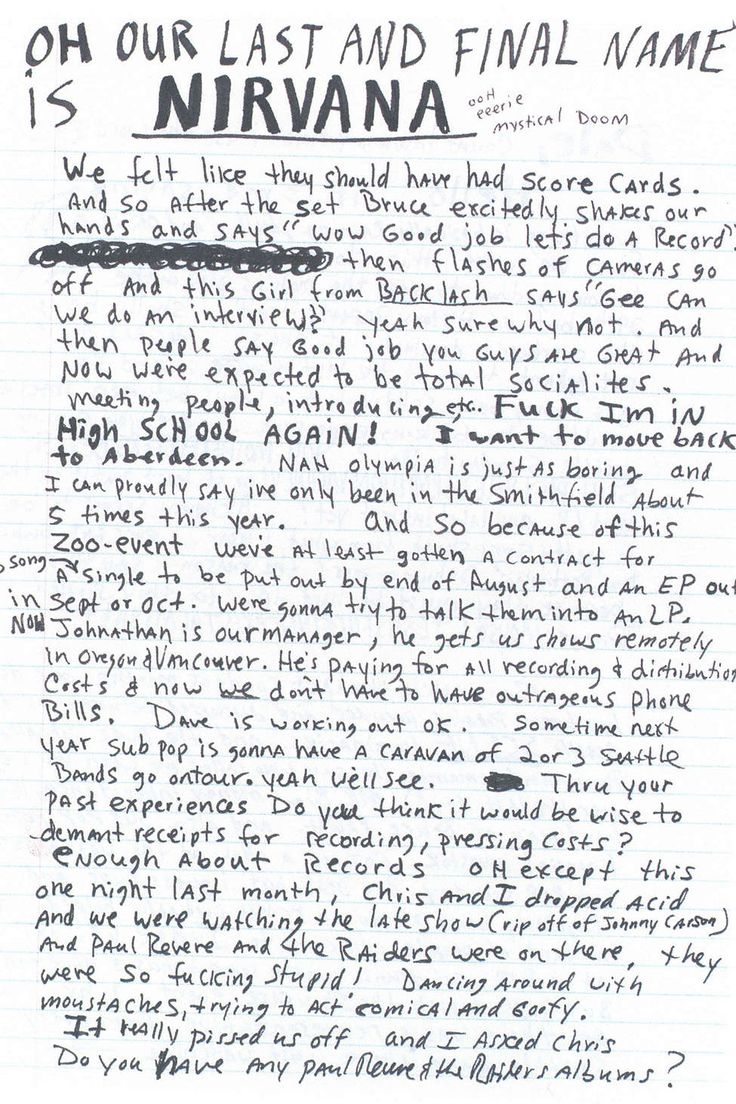 OH OUR LAST AND FINAL NAME
iS NIRVANA ooH eeerie mystical Doom
We felt like they should have had score cards.
And so after the set Bruce excitedly shakes our
hands and says "wow Good job let's do A Record"
then flashes of cameras go
off And this Girl from BACKlash says "Gee can
we do an interview? yeah sure why not. And
then people say Good job you Guys are Great And
Now were expected to be total socialites.
meeting people, introducing etc.. Fuck Im in
High School AGAIN! I want to move back
to Aberdeen. NAH olympia is just as boring and
I can proudly say ive only been in the Smithfield About
5 times this year. and so because of this
Zoo-event weve At least gotten a contract for
song
A single to be put out by end of August and an EP out
in Sept or oct. were gonna try to talk them into An LP.
Now Johnathan is our manager, he gets us shows remotely
in Oregon & Vancouver. He's paying for all recording & distribution
Costs & now we dont have to have outrageous phone
Bills. Dave is working out ok. Sometime next
year sub pop is gonna have a caravan of 2 or 3 seattle
Bands go on tour. yeah we'll see. Thru your
past experiences Do you think it would be wise to
demant receipts for recording, pressing costs?
enough About Records oH except this
one night last month, Chris and I dropped acid
And we were watching the late show (rip off of Johnny Carson)
And Paul Revere and the Raiders were on there, they
were so fucking stupid! Dancing around with
moustaches, trying to act comical and goofy.
It really pissed us off and I Asked Chris
Do you have Any Paul Revere & the Raiders Albums?